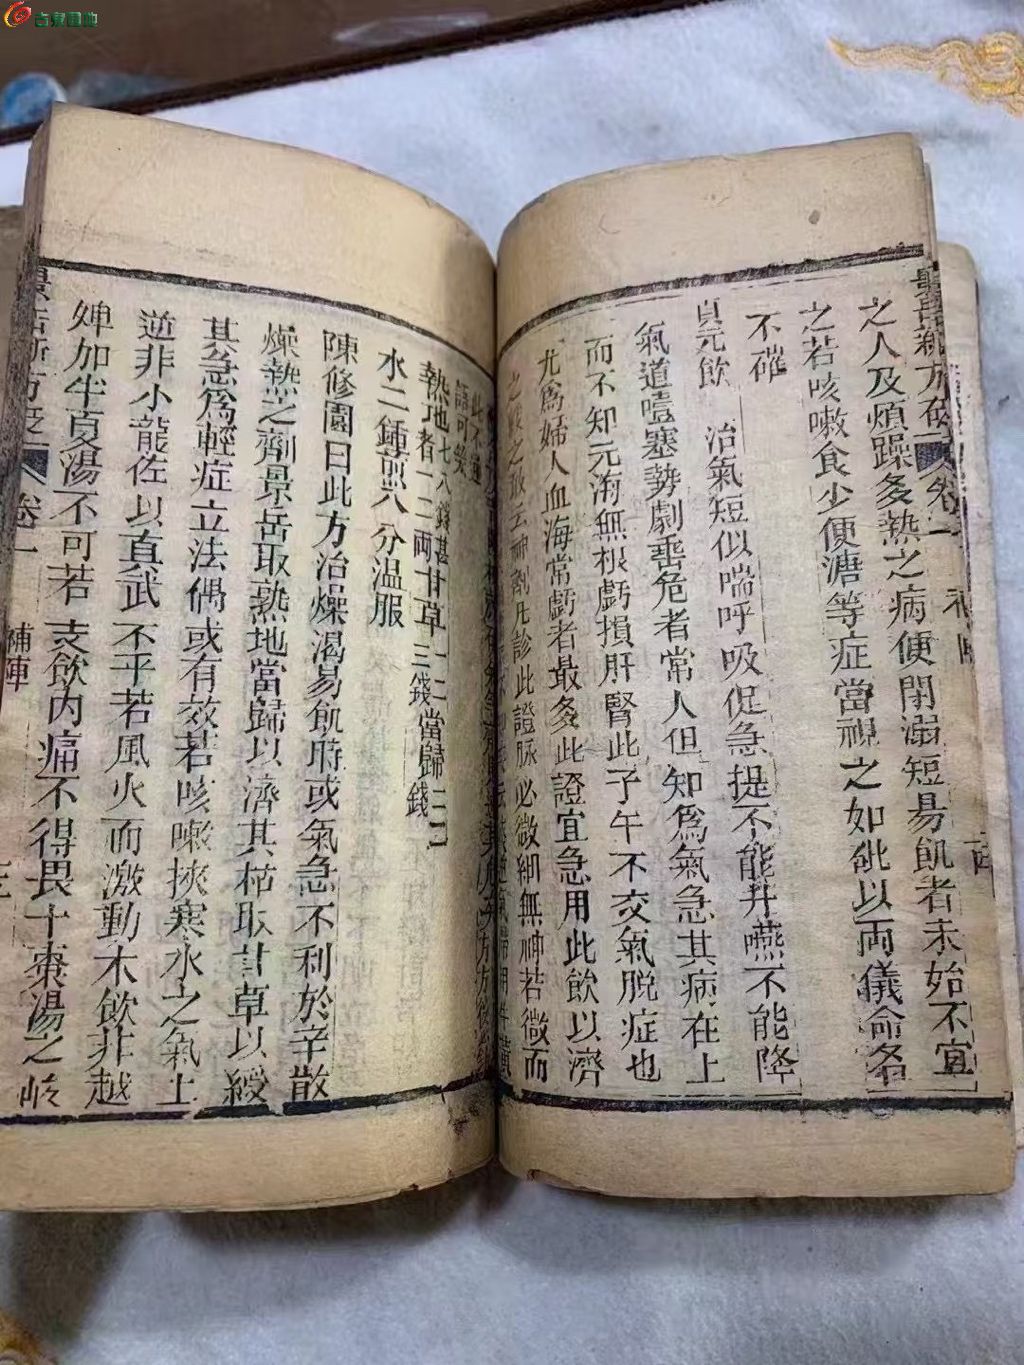 古泉園地
之人及煩躁多熱之病便閉溺短易飢者未始不宜
之若咳嗽食少便溏等症當視之如砒以両儀命名
不確
貞元飲 治氣短似喘呼吸促急提不能升嚥不能降
氣道噎塞勢劇垂危者常人但知爲氣急其病在上
而不知元海無根虧損肝腎此子午不交氣脫症也
尤爲婦人血海常虧者最多此證宜急用此飲以濟
之緩之敢云神劑凡診此證脉必微細無神若微而
此不通
語可笑
熟地七八錢甚
者一二兩甘草一二
三錢當歸二三
錢
水二鍾煎八分温服
陳修園曰此方治燥渴易飢時或氣急不利於辛散
燥熱之劑景岳取熟地當歸以濟其枯取甘草以緩
其急爲輕症立法偶或有效若咳嗽挾寒水之氣上
逆非小龍佐以真武不平若風火而激動水飲非越
婢加半夏湯不可若支飲内痛不得畏十棗湯之峻
卷一 補陣